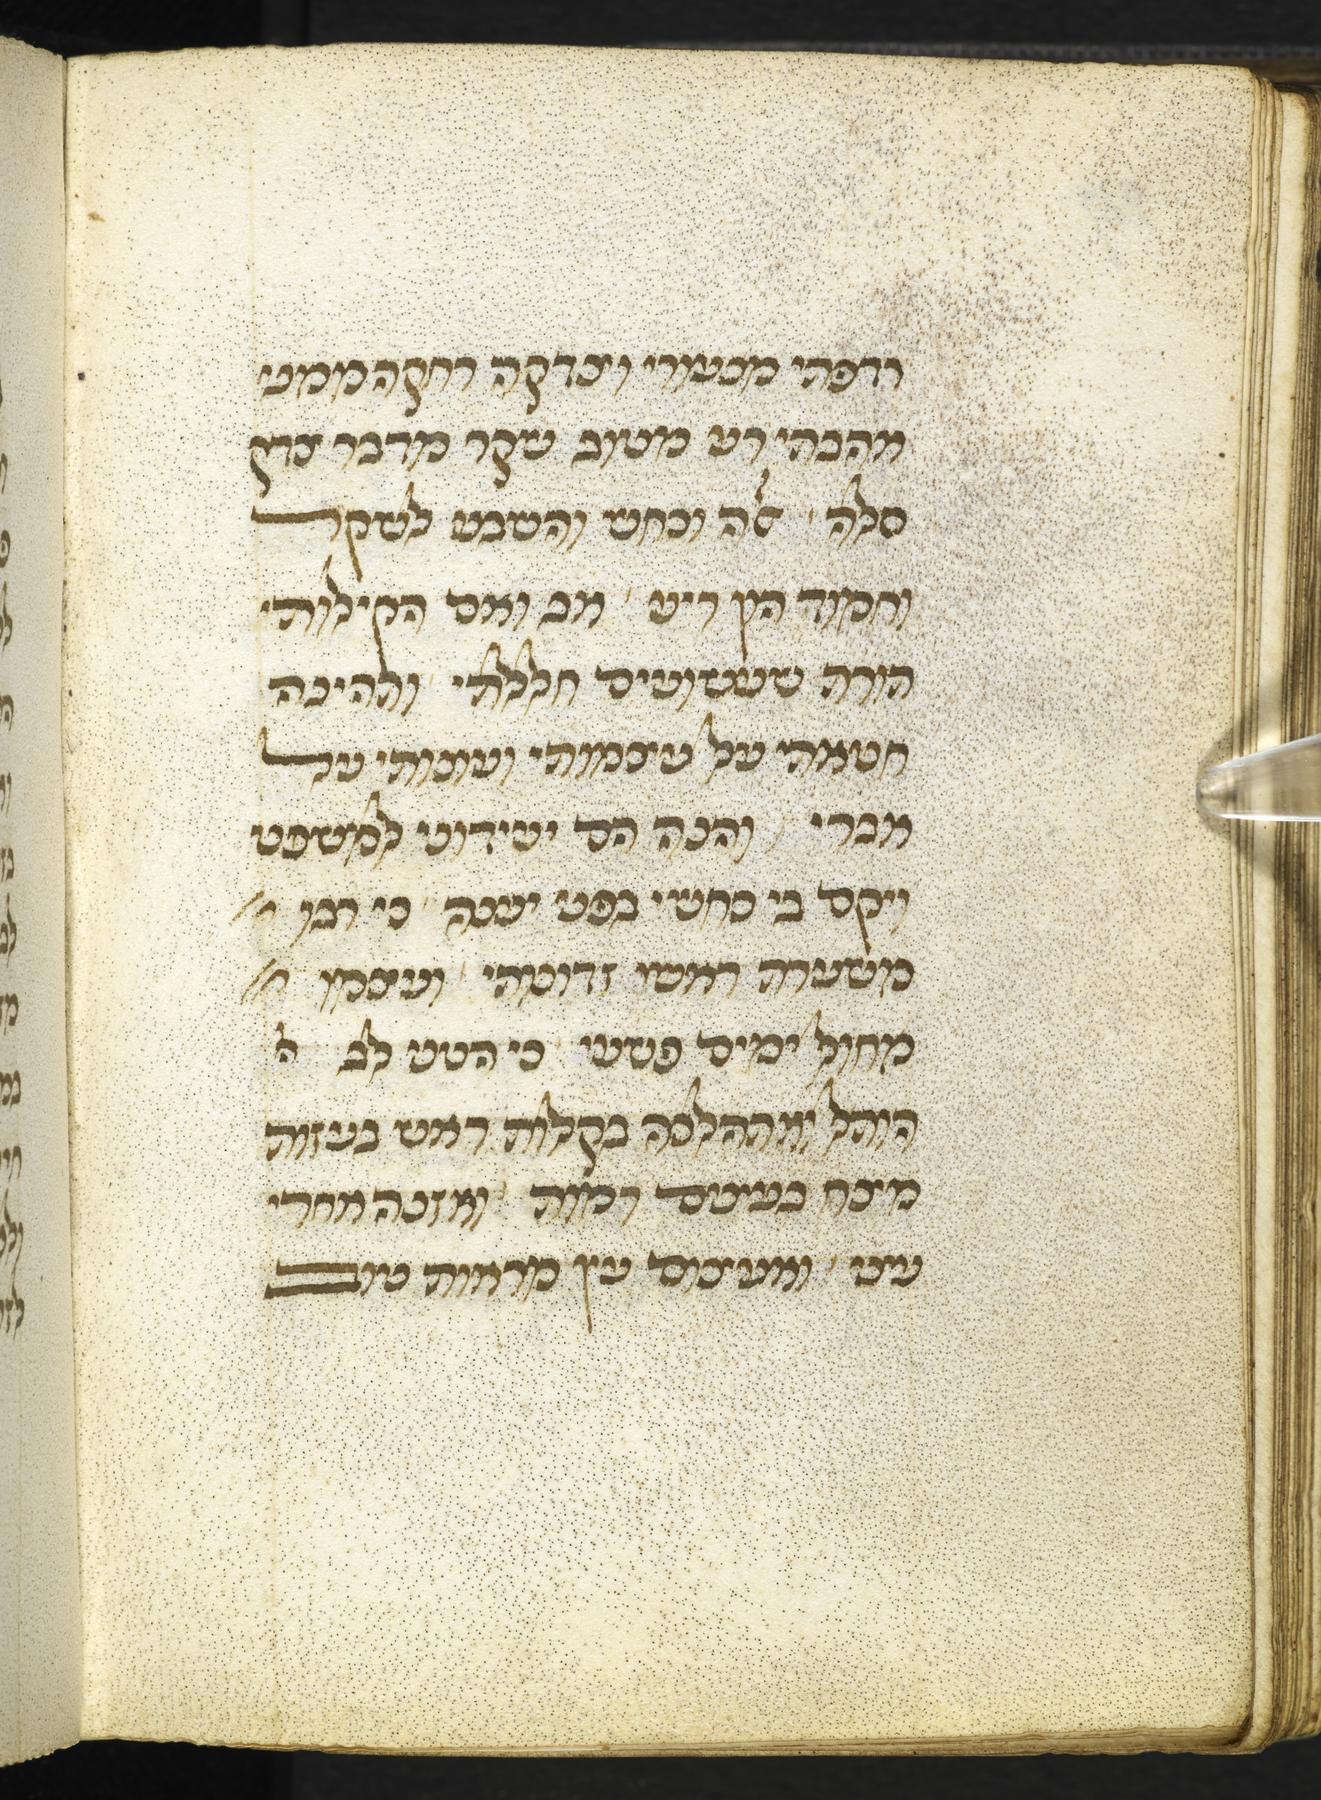 רדפתי מנעורי וצדקה רחקה ממני
אהבתי רע מטוב שקר מדבר צדק
סלה אלה וכחש והשבע לשקר
וחמוד הון ריע אב ואם הקילותי
הורה שעשועים חללתי והריבה
חטאתי על עצמותי ועונותי על
אברי והנה הם יעידוני למשפט
ויקם בי כחשי בפני יענה כי רבו
משערה ראשי זדונתי ועצמו
מחול ימים פשעי כי הטני לב
הותל ואתהלכה בקלות ראש בעזות
מצח בעינים רמות ואזנה אחרי
עיני ואעלים עין מראות טוב